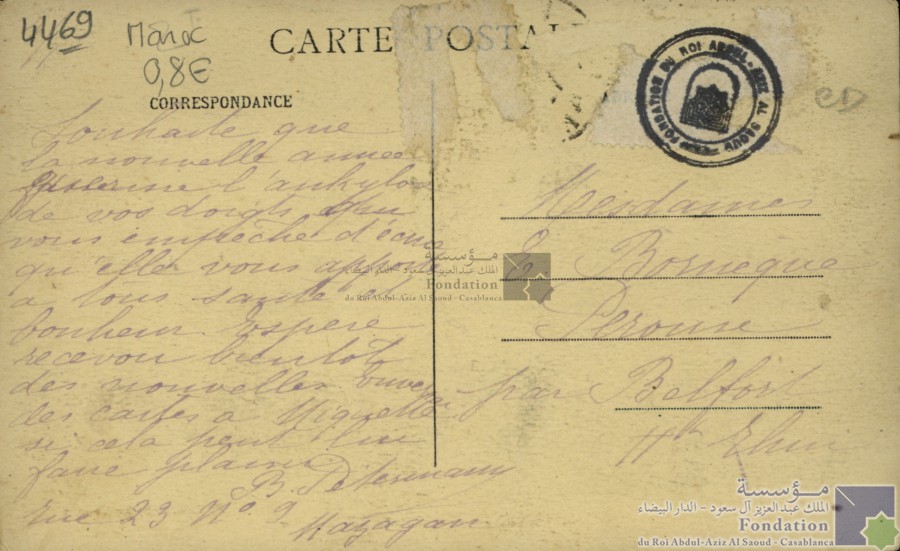 4469
Maroc
0,8€
CARTE POSTA
CORRESPONDANCE
FONDATION DU ROI ABDUL-AZIZ AL SAOUD
CD
Souhaite que
la nouvelle année
l'ankylos
de vos doigts qui
vous empêche d'écrire
qu'elle vous apporte
à tous santé et
bonheur Espere
recevoir bientot
des nouvelles
des cartes a Miquette
si cela peut lui
faire plaisir
B. Petermann
rue 23 No 9
Mazagan
Mesdames
Bornèque
par Belfort
Ht Rhin
مؤسسة
الملك عبدالعزيز آل سعود - الدار البيضاء
Fondation
du Roi Abdul-Aziz Al Saoud - Casablanca
مؤسسة
الملك عبدالعزيز آل سعود - الدار البيضاء
Fondation
du Roi Abdul-Aziz Al Saoud - Casablanca